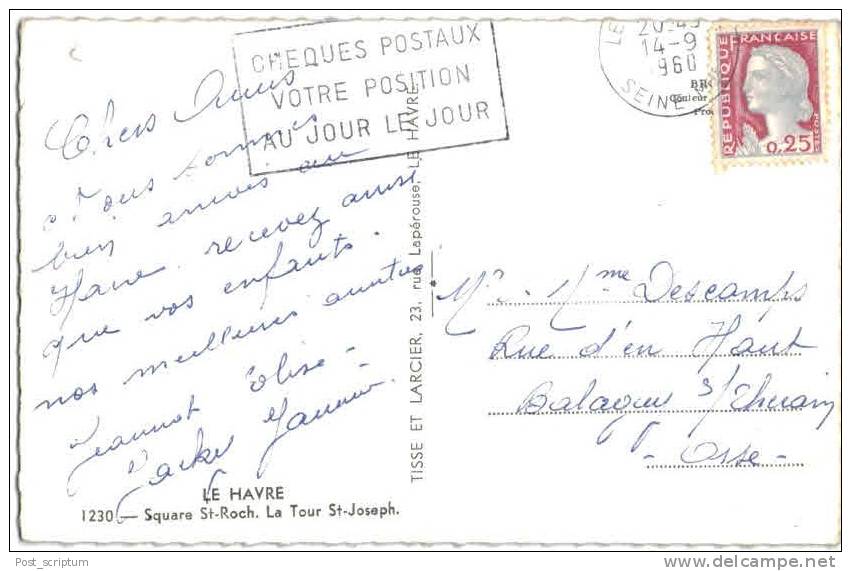 CHEQUES POSTAUX
VOTRE POSITION
AU JOUR LE JOUR
LE
20-45
14-9
1960
SEINE
RÉPUBLIQUE FRANÇAISE
0,25
POSTES
Chers Amis
Nous sommes
bien arrivés au
Havre. recevez ainsi
que vos enfants.
nos meilleures amitiés
Jeannot Elise -
Jacky
LE HAVRE
1230. — Square St-Roch. La Tour St-Joseph.
TISSE ET LARCIER, 23, rue Lapérouse, LE HAVRE
Mr. Mme Descamps
Rue d'en Haut
Balagny s/Therain
- Oise -
Post_scriptum
delcampe.net